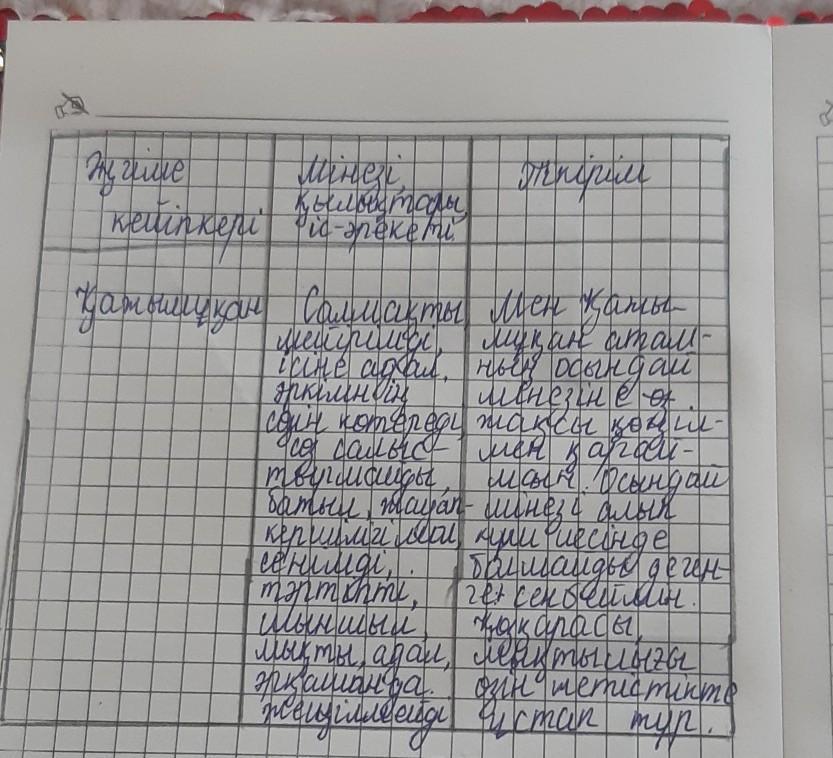 Әңгіме
кейіпкері
Мінезі,
қылықтары,
іс-әрекеті.
Пікірім
Қажымұқан
Салмақты,
мейірімді,
ісіне адал,
әркімнің
сөзін көтереді,
сөз салыс-
тырмайды,
батыл, жауап-
кершілігі мол,
сенімді,
тәртіпті,
шыншыл,
мықты, адал,
әрқашанда
жеңілмейді
Мен Қажы-
мұқан атам-
ның осындай
мінезіне өз
жақсы көңіл-
мен қарай-
мын. Осындай
мінезі алып
күш иесінде
болмайды деген-
ге сенбеймін.
Қоқарасы,
мықтылығы
өзін жетістікте
ұстап тұр.